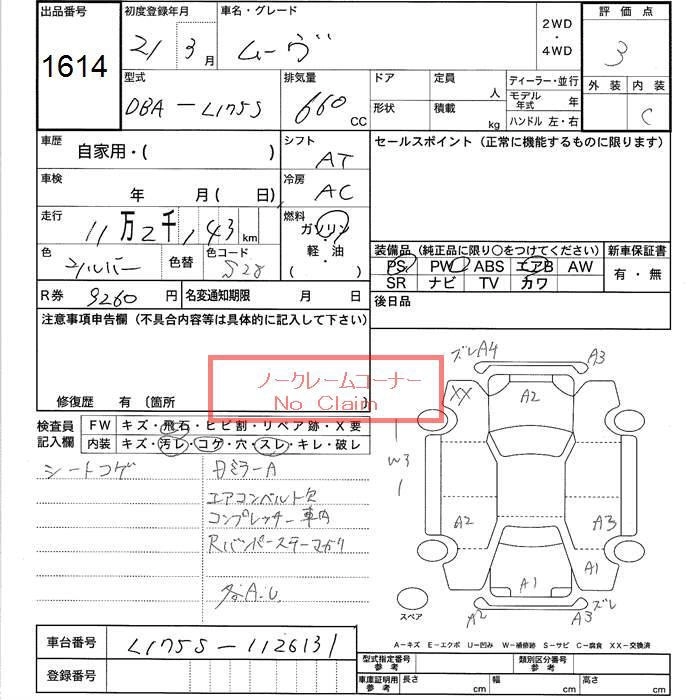 出品番号 初度登録年月 車名・グレード 2WD・4WD 評価点
1614 21 3月 ムーヴ 3
型式 排気量 ドア 定員 人 ディーラー・並行 外装 内装
DBA-L175S 660 CC 形状 積載 kg モデル年式 年 C
ハンドル 左・右
車歴 自家用・( ) シフト AT セールスポイント (正常に機能するものに限ります)
車検 年 月( 日) 冷房 AC
走行 11万2千,143km 燃料 ガソリン
軽・油
( )
色 シルバー 色替 色コード S28
装備品 (純正品に限り○をつけてください) 新車保証書
PS PW ABS エアB AW 有・無
SR ナビ TV カワ
R券 9260円 名変通知期限 月 日 後日品
注意事項申告欄 (不具合内容等は具体的に記入して下さい)
ノークレームコーナー
No Claim
修復歴 有 〔箇所
検査員記入欄 FW キズ・飛石・ヒビ割・リペア跡・X要
内装 キズ・汚レ・コゲ・穴・スレ・キレ・破レ
シートコゲ
エアコンベルト欠
コンプレッサー車内
Rバンパーステーマガリ
各A.U.
ズレA4 A3
XX A2
W3
A2 A3
A1 A1
A2 A3ズレ
スペア
A-キズ E-エクボ U-凹み W-補修跡 S-サビ C-腐食 XX-交換済
車台番号 L175S-1126131
登録番号
型式指定番号参考 類別区分番号参考
車庫証明用参考 長さ cm 幅 cm 高さ cm